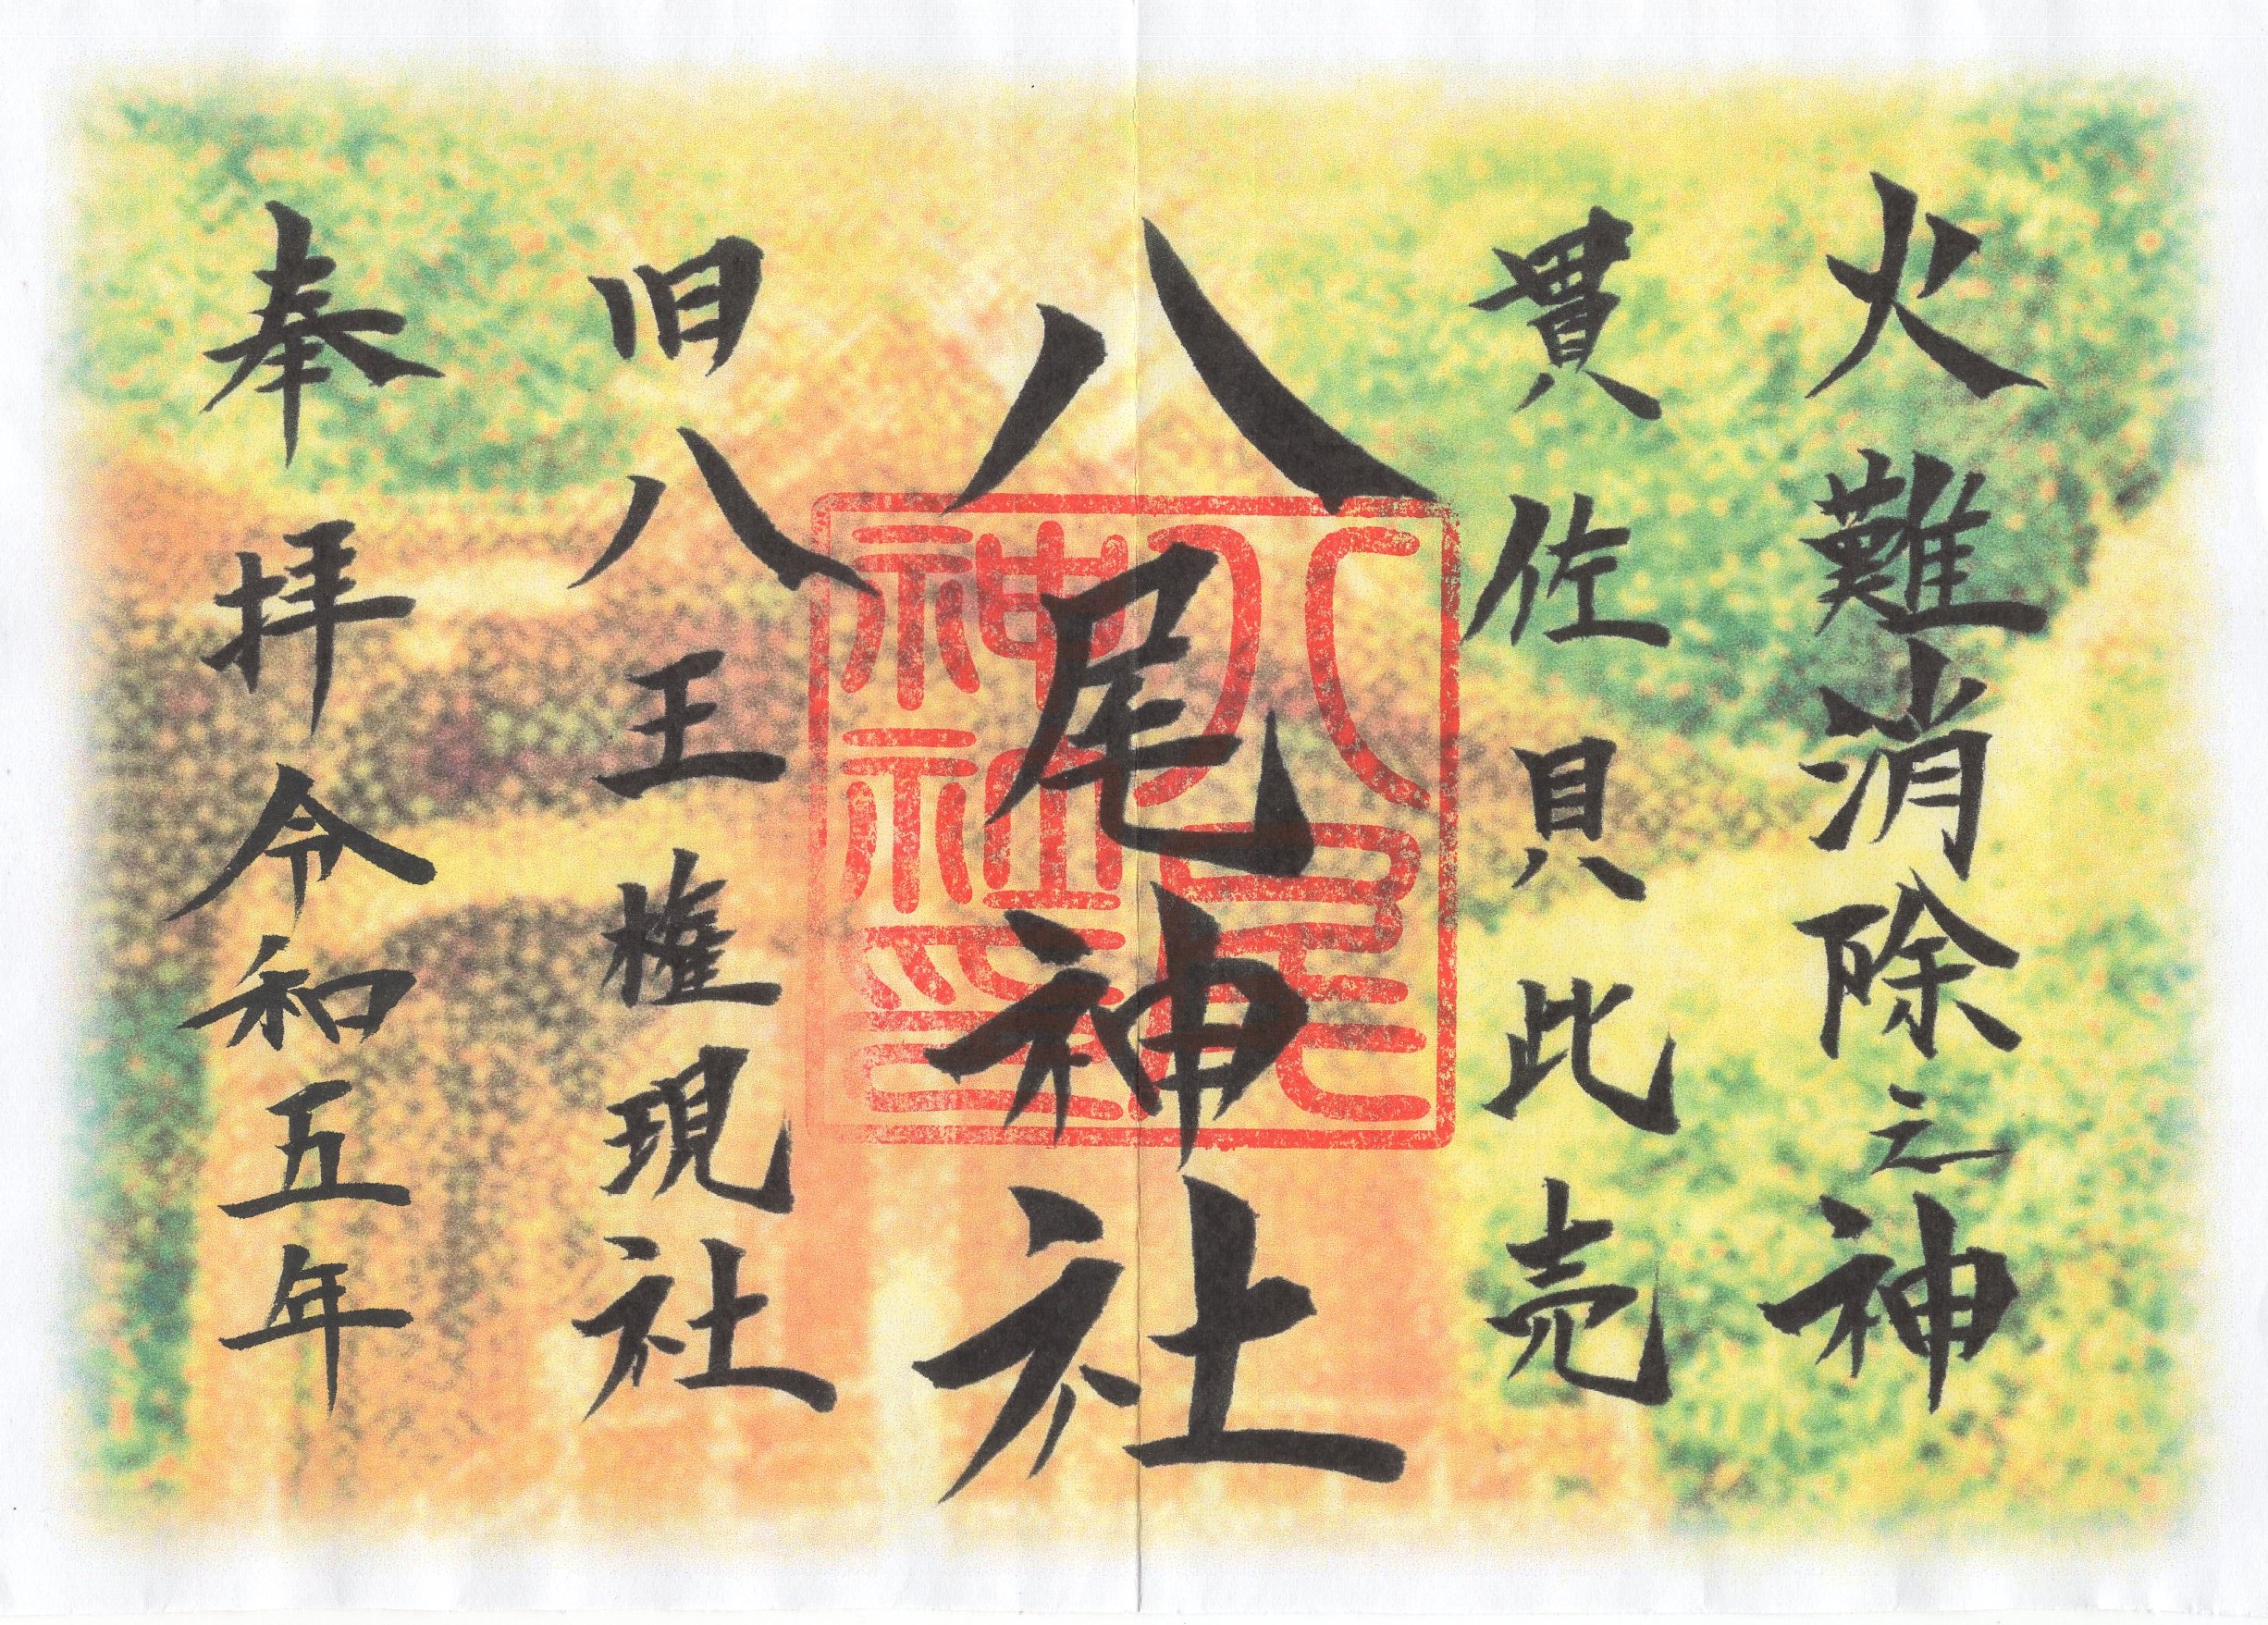 火難消除之神
貫佐貝比売
八尾神社
旧八王権現社
奉拝令和五年
八尾
神社印